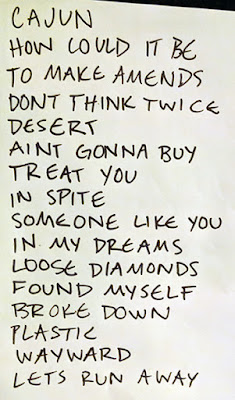 CAJUN
HOW COULD IT BE
TO MAKE AMENDS
DONT THINK TWICE
DESERT
AINT GONNA BUY
TREAT YOU
IN SPITE
SOMEONE LIKE YOU
IN MY DREAMS
LOOSE DIAMONDS
FOUND MYSELF
BROKE DOWN
PLASTIC
WAYWARD
LETS RUN AWAY